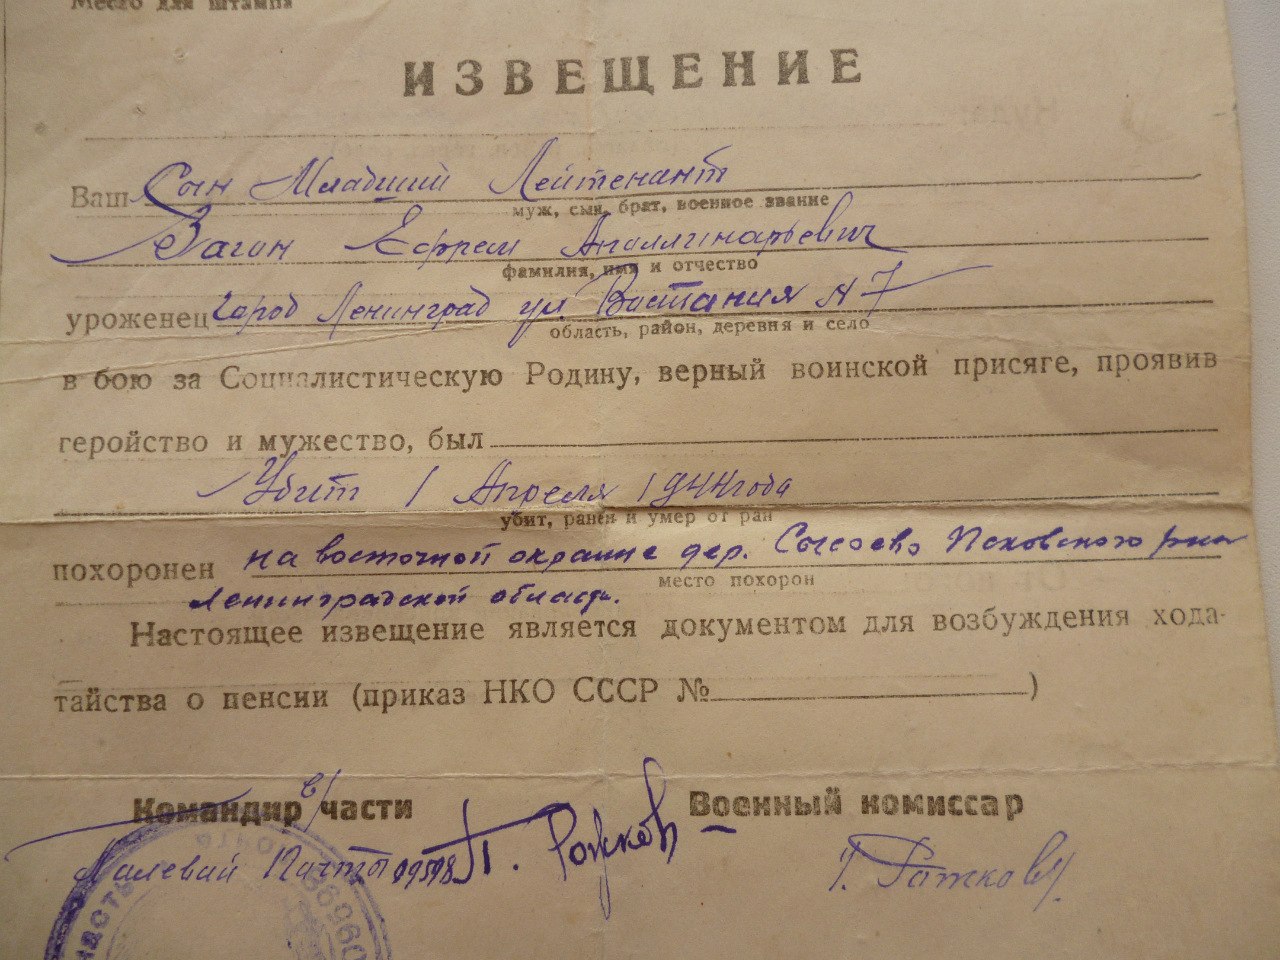 Место для штампа
ИЗВЕЩЕНИЕ
Ваш Сын Младший Лейтенант
муж, сын, брат, военное звание
Ваган Ефрем Аполлинарьевич
фамилия, имя и отчество
уроженец город Ленинград ул. Востания N 7
область, район, деревня и село
в бою за Социалистическую Родину, верный воинской присяге, проявив
геройство и мужество, был
Убит 1 Апреля 1944 года
убит, ранен и умер от ран
похоронен на восточной окраине дер. Сысоево Псковского р-на
место похорон
Ленинградской области.
Настоящее извещение является документом для возбуждения хода-
тайства о пенсии (приказ НКО СССР №)
Командир в/части
Военный комиссар
Полевая Почта
Рожков